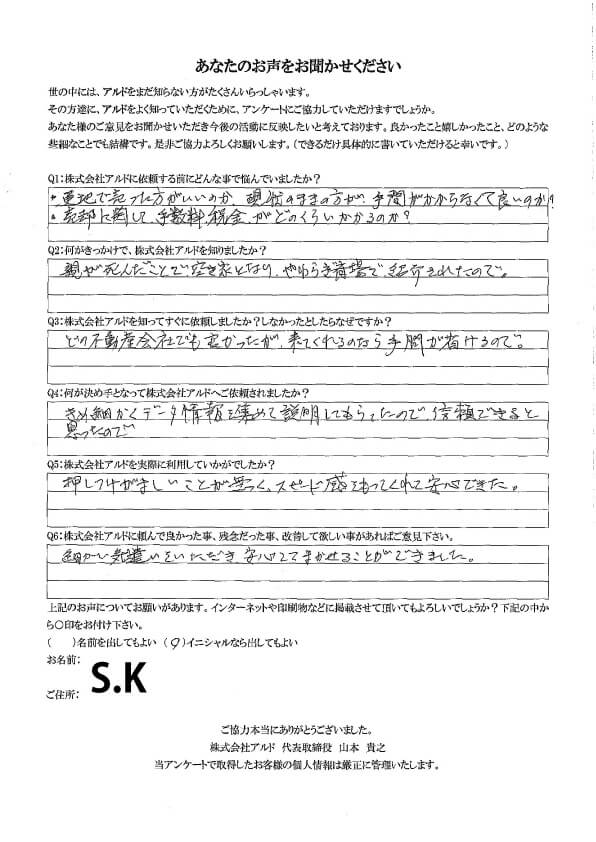 あなたのお声をお聞かせください
世の中には、アルドをまだ知らない方がたくさんいらっしゃいます。
その方達に、アルドをよく知っていただくために、アンケートにご協力していただけますでしょうか。
あなた様のご意見をお聞かせいただき今後の活動に反映したいと考えております。良かったこと嬉しかったこと、どのような
些細なことでも結構です。是非ご協力よろしくお願いします。(できるだけ具体的に書いていただけると幸いです。)
Q1:株式会社アルドに依頼する前にどんな事で悩んでいましたか?
・更地で売った方がいいのか、現状のままの方が、手間がかからなくて良いのか?
・売却に関して、手数料、税金がどのくらいかかるのか?
Q2:何がきっかけで、株式会社アルドを知りましたか?
親が死んだことで空き家となり、やわらぎ斎場で、紹介されたので。
Q3:株式会社アルドを知ってすぐに依頼しましたか?しなかったとしたらなぜですか?
どの不動産会社でも良かったが、来てくれるのなら手間が省けるので。
Q4:何が決め手となって株式会社アルドへご依頼されましたか?
きめ細かくデータ情報を集めて説明してもらったので、信頼できると
思ったので
Q5:株式会社アルドを実際に利用していかがでしたか?
押しつけがましいことが無く、スピード感をもってくれて安心できた。
Q6:株式会社アルドに頼んで良かった事、残念だった事、改善して欲しい事があればご意見下さい。
細かい気遣いをいただき安心してまかせることができました。
上記のお声についてお願いがあります。インターネットや印刷物などに掲載させて頂いてもよろしいでしょうか?下記の中か
ら〇印をお付け下さい。
( )名前を出してもよい (〇)イニシャルなら出してもよい
お名前:
S.K
ご住所:
ご協力本当にありがとうございました。
株式会社アルド 代表取締役 山本 貴之
当アンケートで取得したお客様の個人情報は厳正に管理いたします。